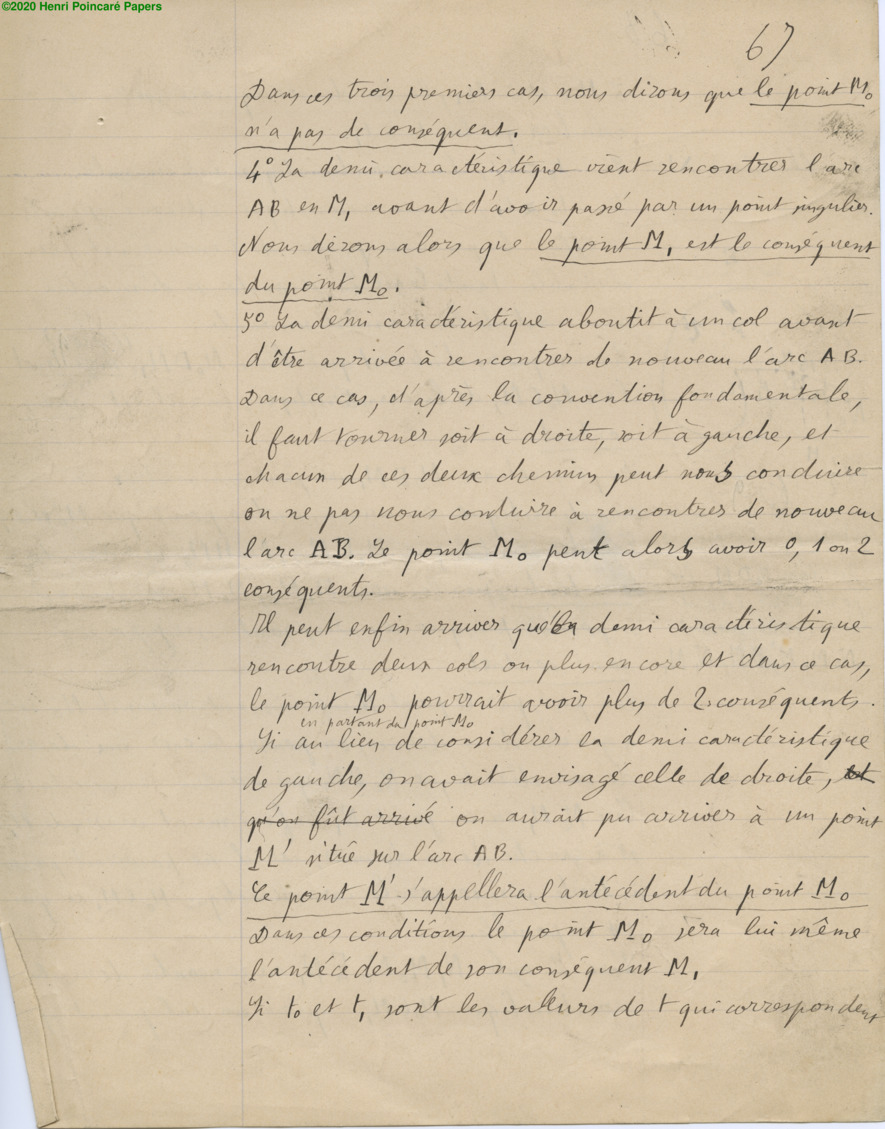 ©2020 Henri Poincaré Papers
67
Dans ces trois premiers cas, nous dirons que le point M₀
n'a pas de conséquent.
4° La demi caractéristique vient rencontrer l'arc
AB en M₁ avant d'avoir passé par un point singulier.
Nous dirons alors que le point M₁ est le conséquent
du point M₀.
5° La demi caractéristique aboutit à un col avant
d'être arrivée à rencontrer de nouveau l'arc AB.
Dans ce cas, d'après la convention fondamentale,
il faut tourner soit à droite, soit à gauche, et
chacun de ces deux chemins peut nous conduire
ou ne pas nous conduire à rencontrer de nouveau
l'arc AB. Le point M₀ peut alors avoir 0, 1 ou 2
conséquents.
Il peut enfin arriver que la demi caractéristique
rencontre deux cols ou plus encore et dans ce cas,
le point M₀ pourrait avoir plus de 2 conséquents.
en partant du point M₀
Si au lieu de considérer la demi caractéristique
de gauche, on avait envisagé celle de droite, et
qu'on fût arrivé on aurait pu arriver à un point
M' situé sur l'arc AB.
Ce point M' s'appellera l'antécédent du point M₀
Dans ces conditions le point M₀ sera lui même
l'antécédent de son conséquent M₁
Si t₀ et t₁ sont les valeurs de t qui correspondent